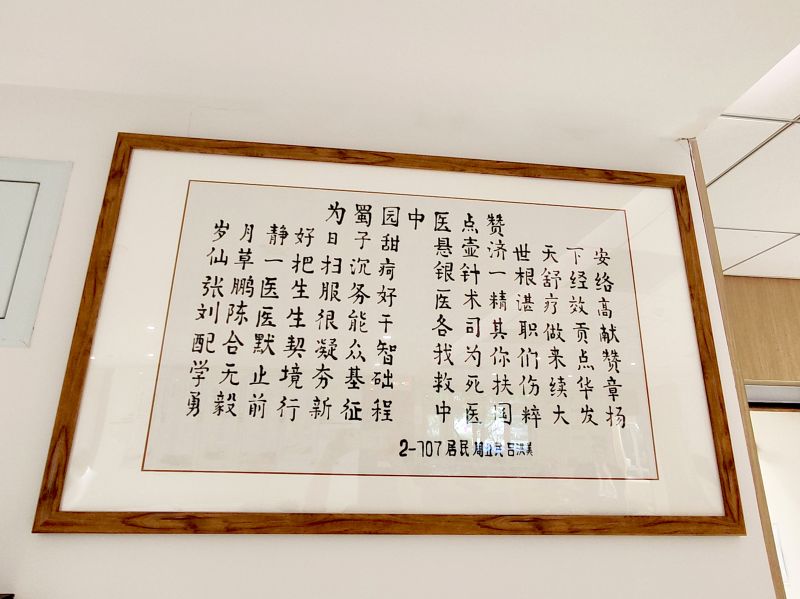 为蜀园中医点赞
岁月静好日子甜
仙草一把扫沉疴
张鹏医生服务好
刘陈医生很能干
配合默契凝众智
学无止境夯基础
勇毅前行新征程
悬壶济世天下安
银针一根舒经络
医术精谌疗效高
各司其职做贡献
我为你们来点赞
救死扶伤续华章
中医国粹大发扬
2-707居民 吕洪美